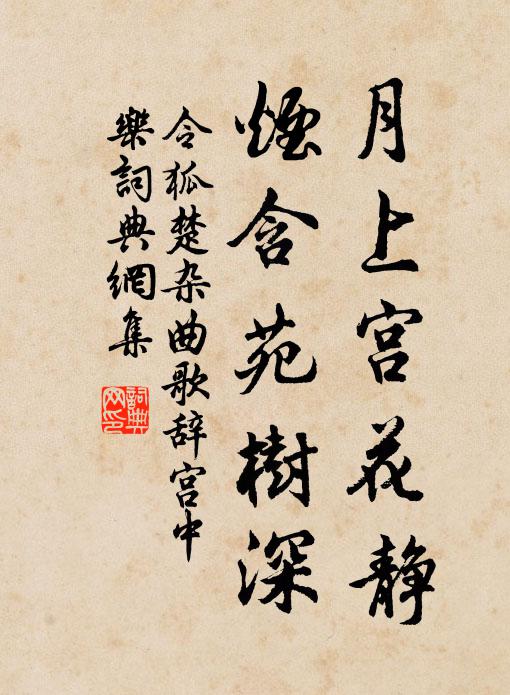 月上宫花静
烟含苑樹深
令狐楚杂曲歌辞宫中
樂詞典網集
詞典
网印